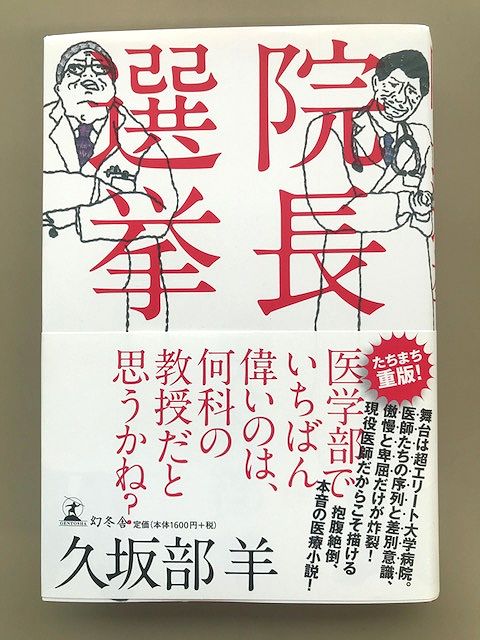 院長
選挙
たちまち
重版!
医学部で
いちばん
偉いのは、
何科の
教授だと
思うかね?
舞台は超エリート大学病院。
医師たちの序列と差別意識、
傲慢と卑屈だけが炸裂!
現役医師だからこそ描ける
抱腹絶倒、
本音の医療小説!
GENTOSHA
幻冬舎
定価(本体1600円+税)
久坂部 羊